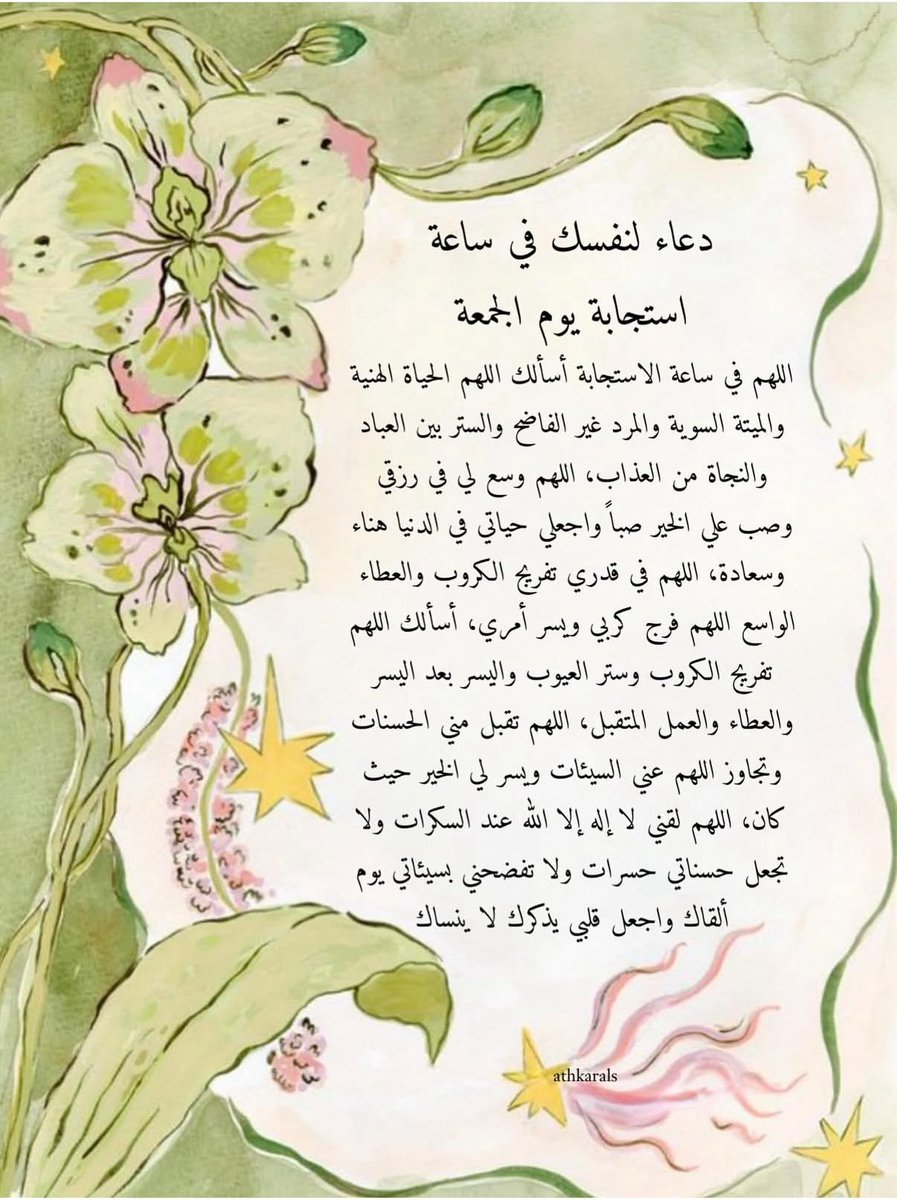 دعاء لنفسك في ساعة
استجابة يوم الجمعة
اللهم في ساعة الاستجابة أسألك اللهم الحياة الهنية
والميتة السوية والمرد غير الفاضح والستر بين العباد
والنجاة من العذاب، اللهم وسع لي في رزقي
وصب علي الخير صباً واجعلي حياتي في الدنيا هناء
وسعادة، اللهم في قدري تفريج الكروب والعطاء
الواسع اللهم فرج كربي ويسر أمري، أسألك اللهم
تفريج الكروب وستر العيوب واليسر بعد اليسر
والعطاء والعمل المتقبل، اللهم تقبل مني الحسنات
وتجاوز اللهم عني السيئات ويسر لي الخير حيث
كان، اللهم لقني لا إله إلا الله عند السكرات ولا
تجعل حسناتي حسرات ولا تفضحني بسيئاتي يوم
ألقاك واجعل قلبي يذكرك لا ينساك
athkarals